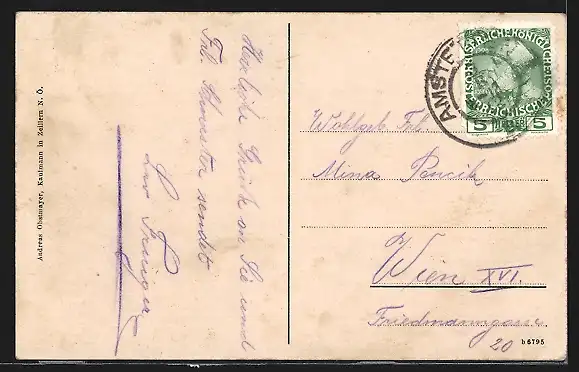 Andreas Obstmayer, Kaufmann in Zeillern N. Ö.
Herzliche Grüße an Sie und
Frl. Schwester sendet
AMSTE
KAISERLICHE KÖNIGLICHE
ÖSTERREICHISCHE
5 HELLER 5
Wohlgeb Frl.
Mina Pencik
Wien XVI.
Friedmanngasse
20
b 6795